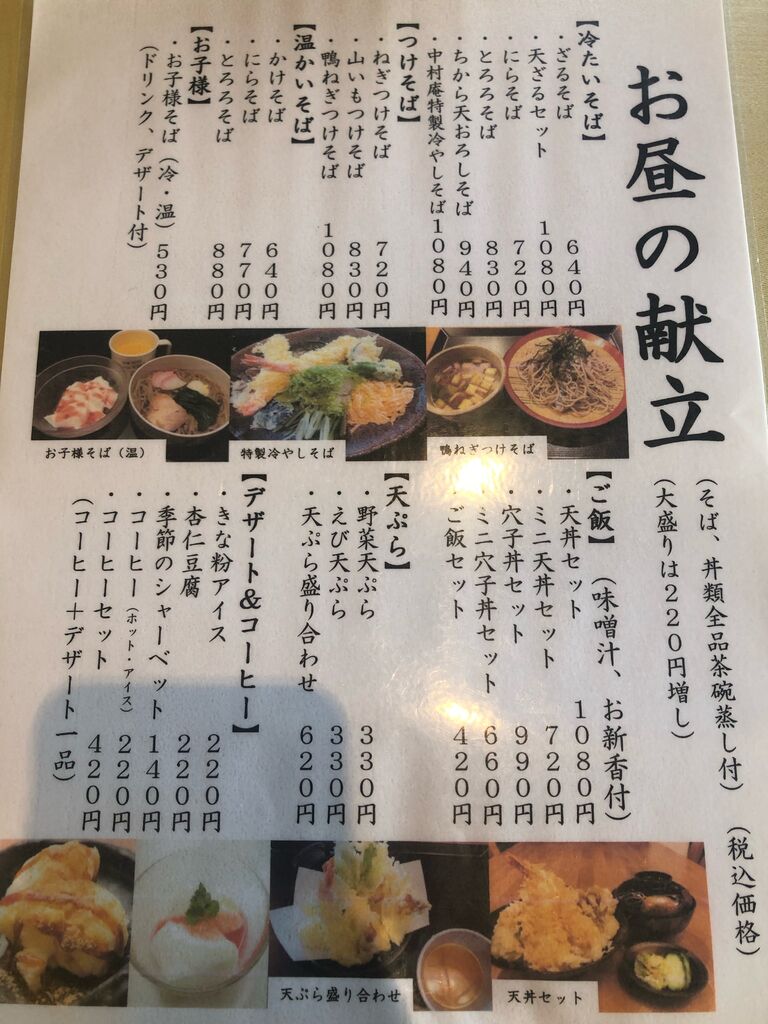 お昼の献立
(そば、丼類全品茶碗蒸し付)
(大盛りは220円増し)
(税込価格)
【冷たいそば】
・ざるそば 640円
・天ざるセット 1080円
・にらそば 720円
・とろろそば 830円
・ちから天おろしそば 940円
・中村庵特製冷やしそば 1080円
【つけそば】
・ねぎつけそば 720円
・山いもつけそば 830円
・鴨ねぎつけそば 1080円
【温かいそば】
・かけそば 640円
・にらそば 770円
・とろろそば 880円
【お子様】
・お子様そば(冷・温) 530円
(ドリンク、デザート付)
鴨ねぎつけそば
特製冷やしそば
お子様そば(温)
【ご飯】 (味噌汁、お新香付)
・天丼セット 1080円
・ミニ天丼セット 720円
・穴子丼セット 990円
・ミニ穴子丼セット 660円
・ご飯セット 420円
【天ぷら】
・野菜天ぷら 330円
・えび天ぷら 330円
・天ぷら盛り合わせ 620円
【デザート&コーヒー】
・きな粉アイス 220円
・杏仁豆腐 220円
・季節のシャーベット 140円
・コーヒー(ホット・アイス) 220円
・コーヒーセット 420円
(コーヒー+デザート一品)
天丼セット
天ぷら盛り合わせ